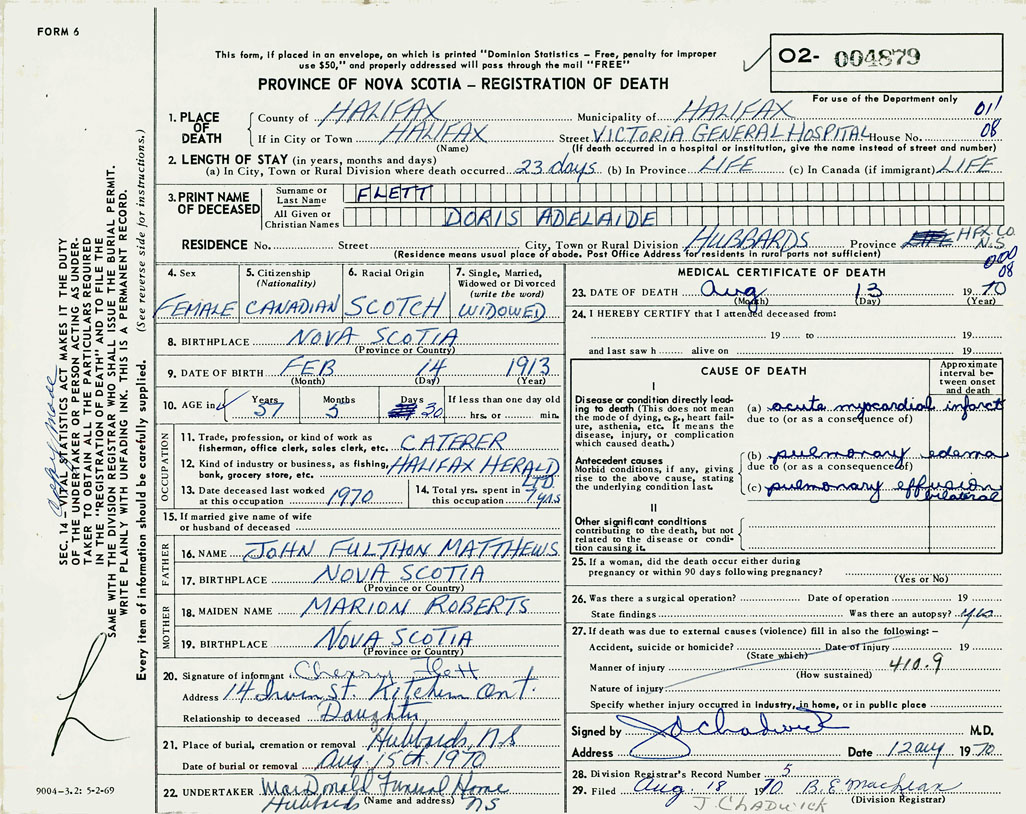 FORM 6
This form, if placed in an envelope, on which is printed "Dominion Statistics – Free, penalty for improper
use $50," and properly addressed will pass through the mail "FREE"
O2- 004879
For use of the Department only
PROVINCE OF NOVA SCOTIA – REGISTRATION OF DEATH
1. PLACE OF DEATH County of HALIFAX Municipality of HALIFAX 011
If in City or Town HALIFAX Street VICTORIA GENERAL HOSPITAL House No. 08
(Name) (If death occurred in a hospital or institution, give the name instead of street and number)
2. LENGTH OF STAY (in years, months and days)
(a) In City, Town or Rural Division where death occurred 23 days (b) In Province LIFE (c) In Canada (if immigrant) LIFE
3. PRINT NAME OF DECEASED Surname or Last Name FLETT
All Given or Christian Names DORIS ADELAIDE
RESIDENCE No. Street City, Town or Rural Division HUBBARDS Province HFX CO. N.S
(Residence means usual place of abode. Post Office Address for residents in rural parts not sufficient)
000
08
4. Sex FEMALE
5. Citizenship (Nationality) CANADIAN
6. Racial Origin SCOTCH
7. Single, Married, Widowed or Divorced (write the word) WIDOWED
8. BIRTHPLACE NOVA SCOTIA
(Province or Country)
9. DATE OF BIRTH FEB 14 1913
(Month) (Day) (Year)
10. AGE in Years 57 Months 5 Days 30 If less than one day old hrs. or min.
OCCUPATION
11. Trade, profession, or kind of work as fisherman, office clerk, sales clerk, etc. CATERER
12. Kind of industry or business, as fishing, bank, grocery store, etc. HALIFAX HERALD LTD
13. Date deceased last worked at this occupation 1970
14. Total yrs. spent in this occupation 7 yrs
15. If married give name of wife or husband of deceased
FATHER
16. NAME JOHN FULTHON MATTHEWS
17. BIRTHPLACE NOVA SCOTIA
(Province or Country)
MOTHER
18. MAIDEN NAME MARION ROBERTS
19. BIRTHPLACE NOVA SCOTIA
(Province or Country)
20. Signature of informant Cherry Flett
Address 14 Irvin St. Kitchen Ont.
Relationship to deceased Daughter
21. Place of burial, cremation or removal Hubbards, N.S
Date of burial or removal Aug. 15th. 1970
22. UNDERTAKER MacDonald Funeral Home
(Name and address) Hubbards NS
MEDICAL CERTIFICATE OF DEATH
23. DATE OF DEATH Aug 13 1970
(Month) (Day) (Year)
24. I HEREBY CERTIFY that I attended deceased from:
19 to 19
and last saw h alive on 19
CAUSE OF DEATH
Approximate interval between onset and death
I
Disease or condition directly leading to death (This does not mean the mode of dying, e.g., heart failure, asthenia, etc. It means the disease, injury, or complication which caused death.)
(a) acute myocardial infarct
due to (or as a consequence of)
Antecedent causes
Morbid conditions, if any, giving rise to the above cause, stating the underlying condition last.
(b) pulmonary edema
due to (or as a consequence of)
(c) pulmonary effusion bilateral
II
Other significant conditions
contributing to the death, but not related to the disease or condition causing it.
25. If a woman, did the death occur either during
pregnancy or within 90 days following pregnancy?
(Yes or No)
26. Was there a surgical operation? Date of operation 19
State findings Was there an autopsy? Yes
27. If death was due to external causes (violence) fill in also the following: –
Accident, suicide or homicide? Date of injury 19
(State which)
Manner of injury 410.9
(How sustained)
Nature of injury
Specify whether injury occurred in industry, in home, or in public place
Signed by J Chadwick M.D.
Address Date 12 aug 1970
28. Division Registrar's Record Number 5
29. Filed Aug. 18 1970 B. E. MacLean
(Division Registrar)
J. CHADWICK
9004–3.2: 5-2-69
SEC. 14 – VITAL STATISTICS ACT MAKES IT THE DUTY
OF THE UNDERTAKER OR PERSON ACTING AS UNDER-
TAKER TO OBTAIN ALL THE PARTICULARS REQUIRED
IN THE "REGISTRATION OF DEATH" AND TO FILE THE
SAME WITH THE DIVISION REGISTRAR WHO SHALL ISSUE THE BURIAL PERMIT.
WRITE PLAINLY WITH UNFADING INK. THIS IS A PERMANENT RECORD.
Every item of information should be carefully supplied. (See reverse side for instructions.)